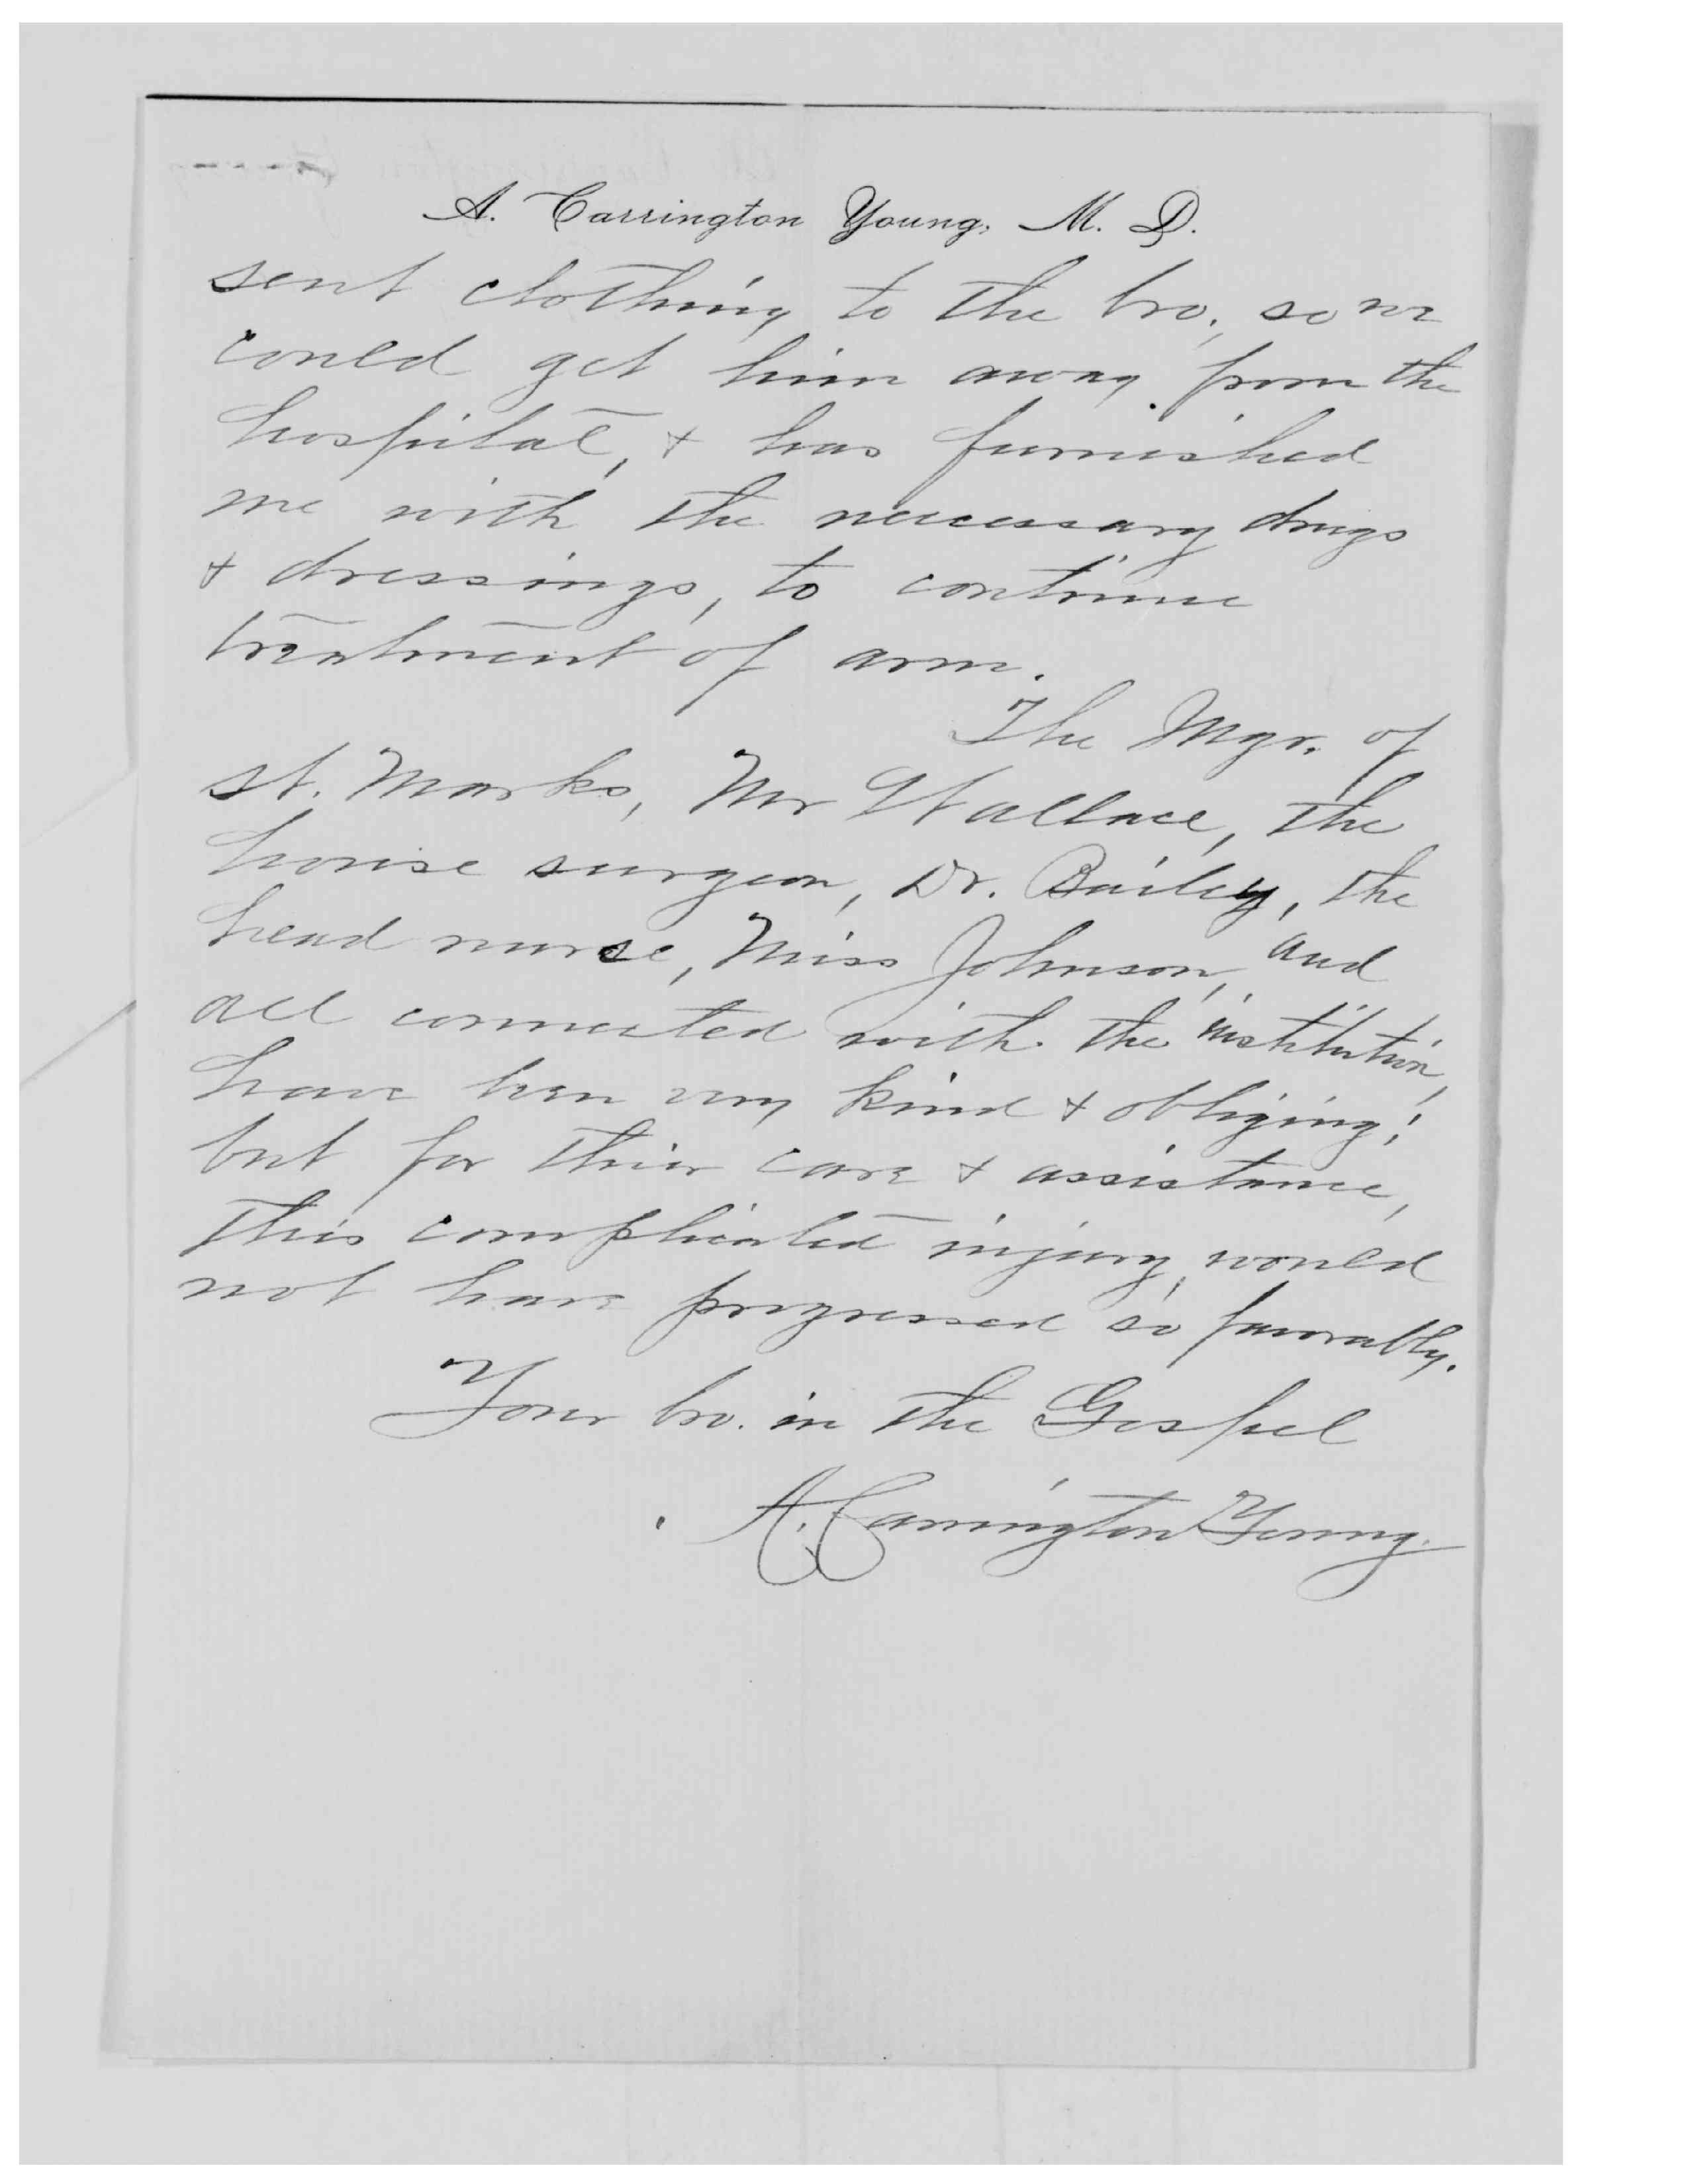 A. Carrington Young, M. D.
sent clothing to the bro. so we
could get him away from the
hospital, & has furnished
me with the neccessary drugs
& dressings, to continue
treatment of arm.
The Mgr. of
St. Marks, Mr Wallace, the
house surgeon, Dr. Bailey, the
head nurse, Miss Johnson, and
all connected with the institution,
have been very kind & obliging;
but for their care & assistance,
this complicated injury, would
not have progressed so favorably.
Your bro. in the Gospel
A. Carrington Young.